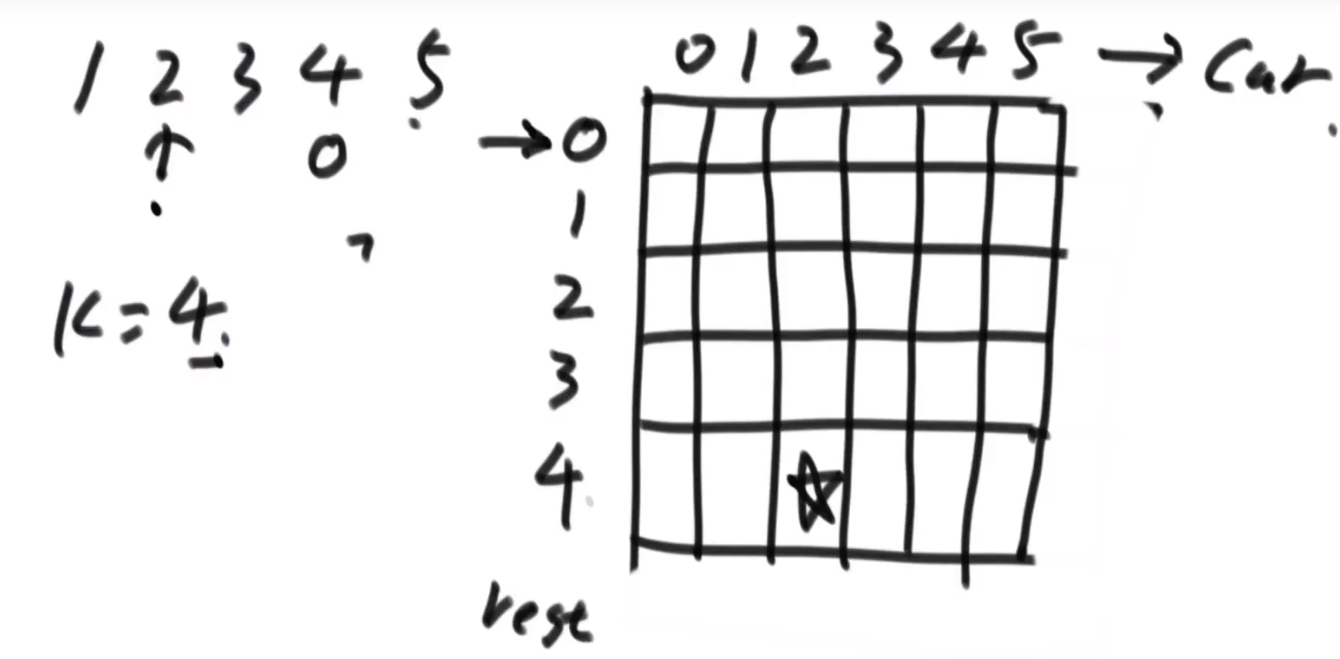 1 2 3 4 5
↑ 0
K=4
0 1 2 3 4 5 → Cur
→ 0
1
2
3
4
rest